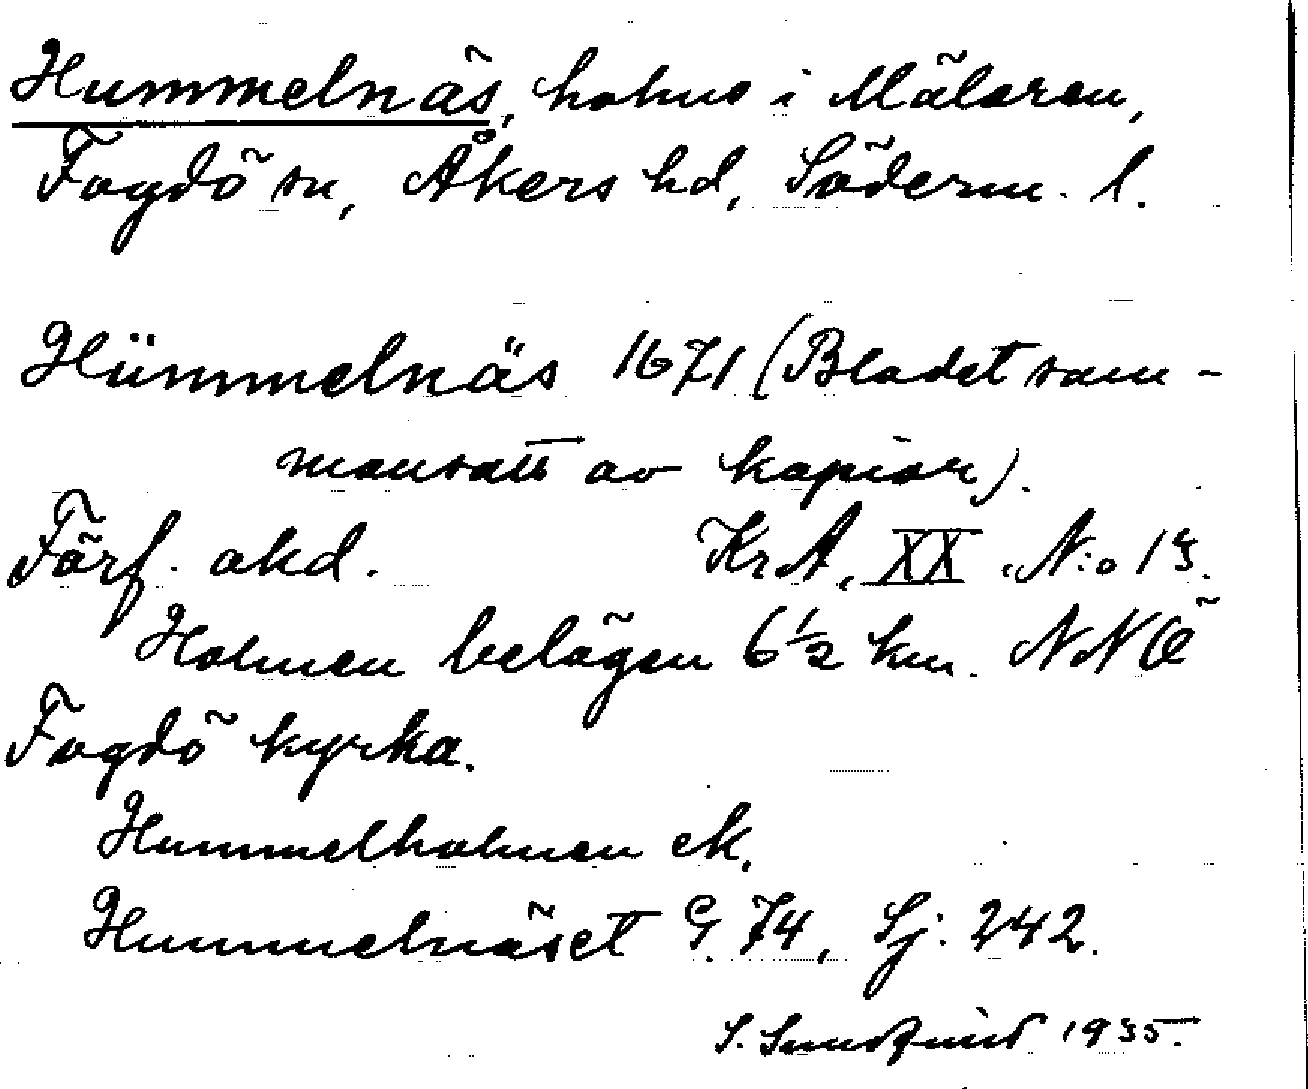 Hummelnäs, holme i Mälaren,
Fogdö sn, Åkers hd, Söderm. l.
Hümmelnäs 1671 (Bladet sam-
mansatt av kopior).
Förf. okd. KrA, XX N:o 13.
Holmen belägen 6½ km. NNÖ
Fogdö kyrka.
Hummelholmen ek.
Hummelnäset G. 74, Sj: 242.
S. Sundqvist 1935.